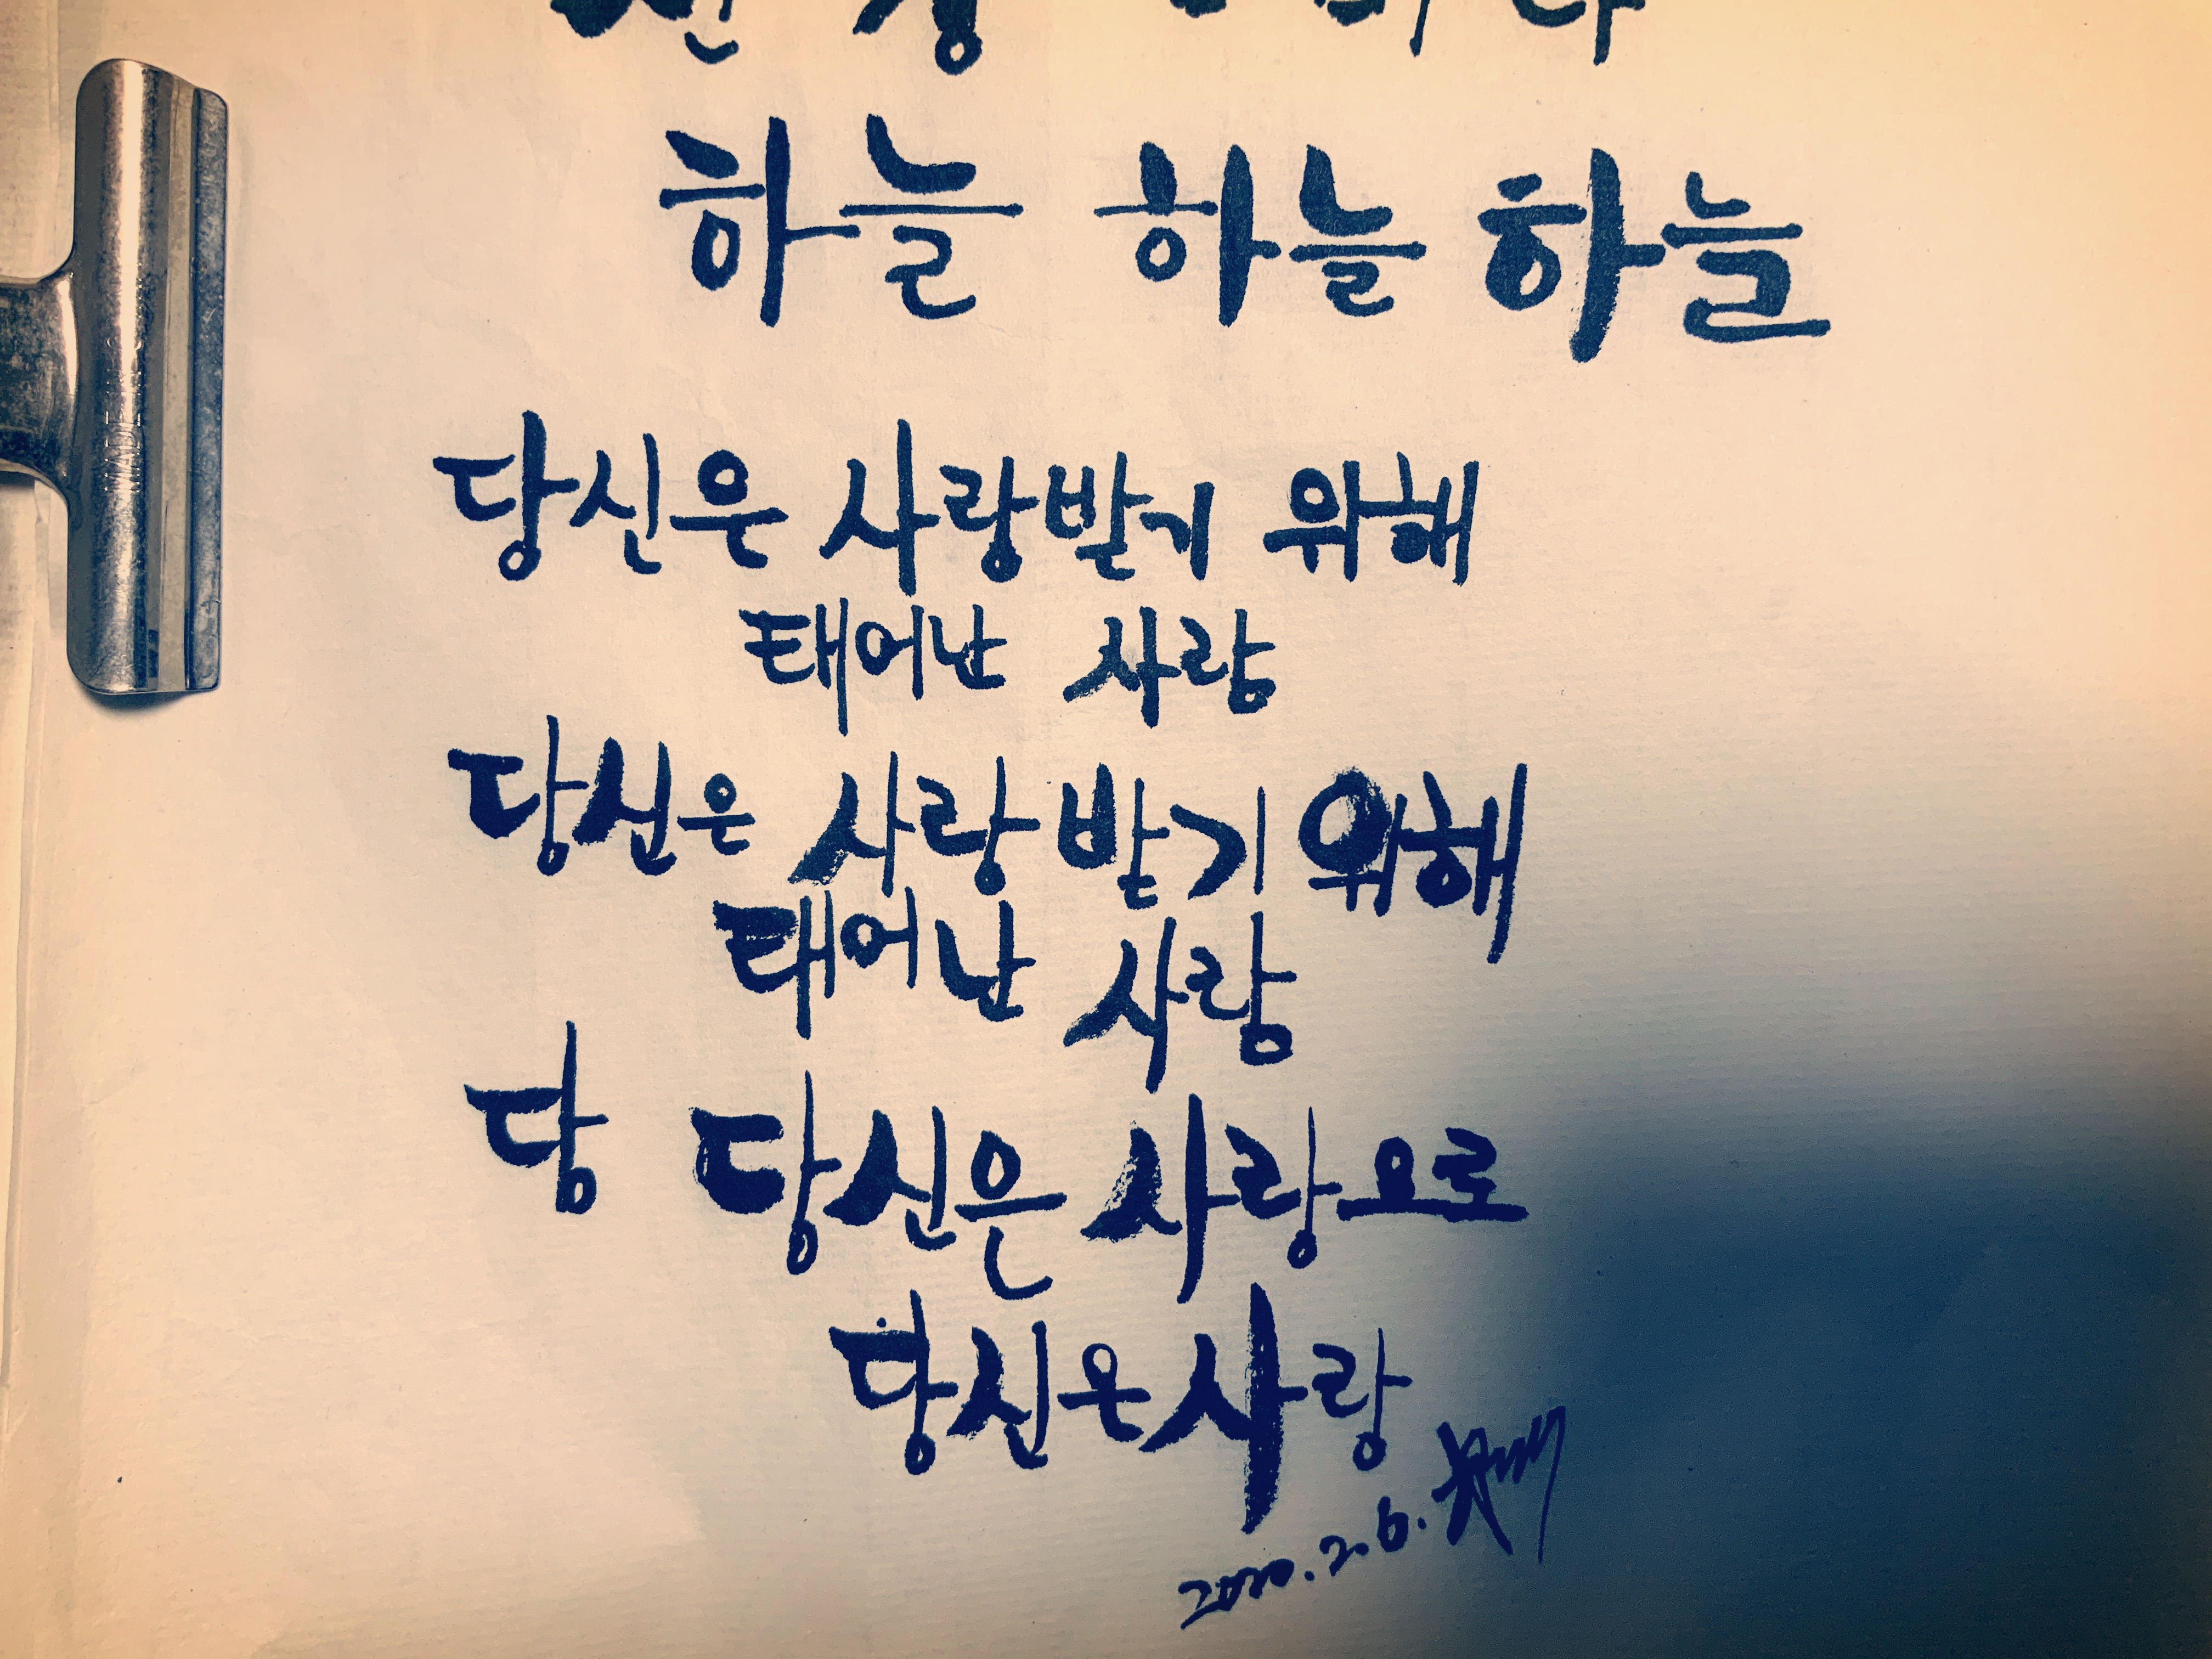 하늘 하늘 하늘
당신은 사랑받기 위해
태어난 사람
당신은 사랑받기 위해
태어난 사람
당 당신은 사랑으로
당신은 사랑
2020.2.6.